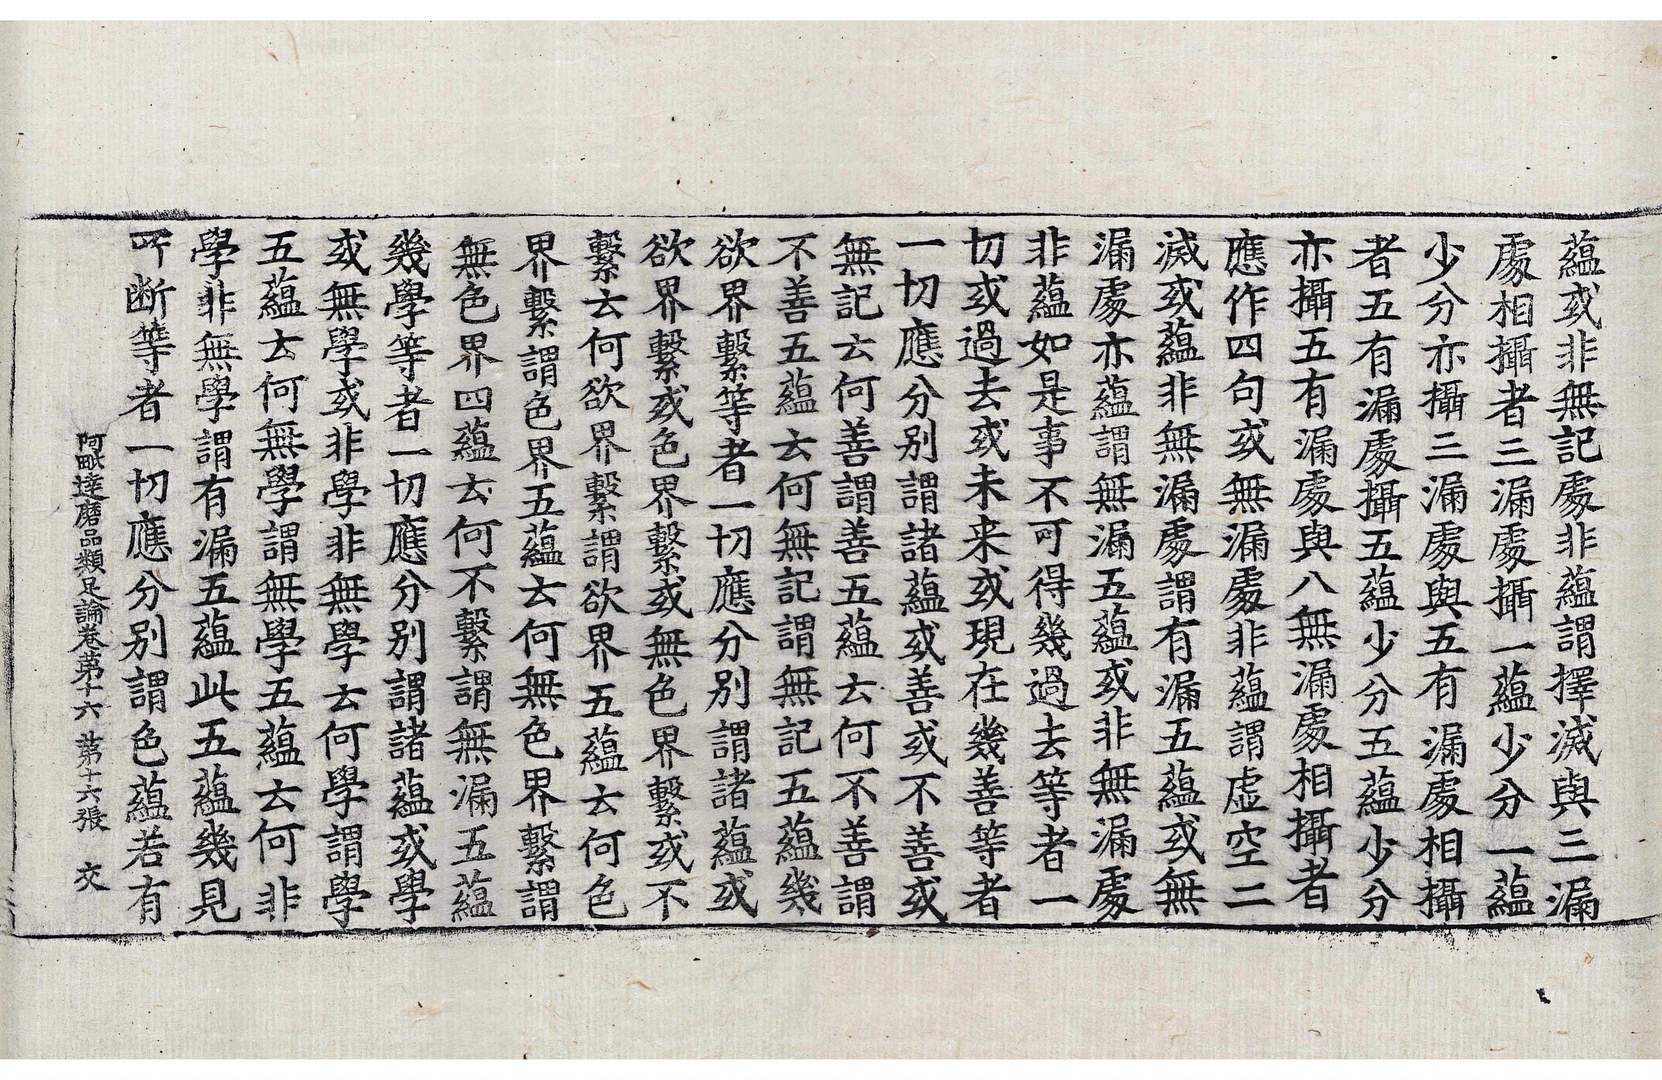 蘊或非無記處非蘊謂擇滅與三漏
處相攝者三漏處攝一蘊少分一蘊
少分亦攝三漏處與五有漏處相攝
者五有漏處攝五蘊少分五蘊少分
亦攝五有漏處與八無漏處相攝者
應作四句或無漏處非蘊謂虛空二
滅或蘊非無漏處謂有漏五蘊或無
漏處亦蘊謂無漏五蘊或非無漏處
非蘊如是事不可得幾過去等者一
切或過去或未来或現在幾善等者
一切應分別謂諸蘊或善或不善或
無記云何善謂善五蘊云何不善謂
不善五蘊云何無記謂無記五蘊幾
欲界繫等者一切應分別謂諸蘊或
欲界繫或色界繫或無色界繫或不
繫云何欲界繫謂欲界五蘊云何色
界繫謂色界五蘊云何無色界繫謂
無色界四蘊云何不繫謂無漏五蘊
幾學等者一切應分別謂諸蘊或學
或無學或非學非無學云何學謂學
五蘊云何無學謂無學五蘊云何非
學非無學謂有漏五蘊此五蘊幾見
所断等者一切應分別謂色蘊若有
阿毗達磨品類足論卷第十六 第十六張 交